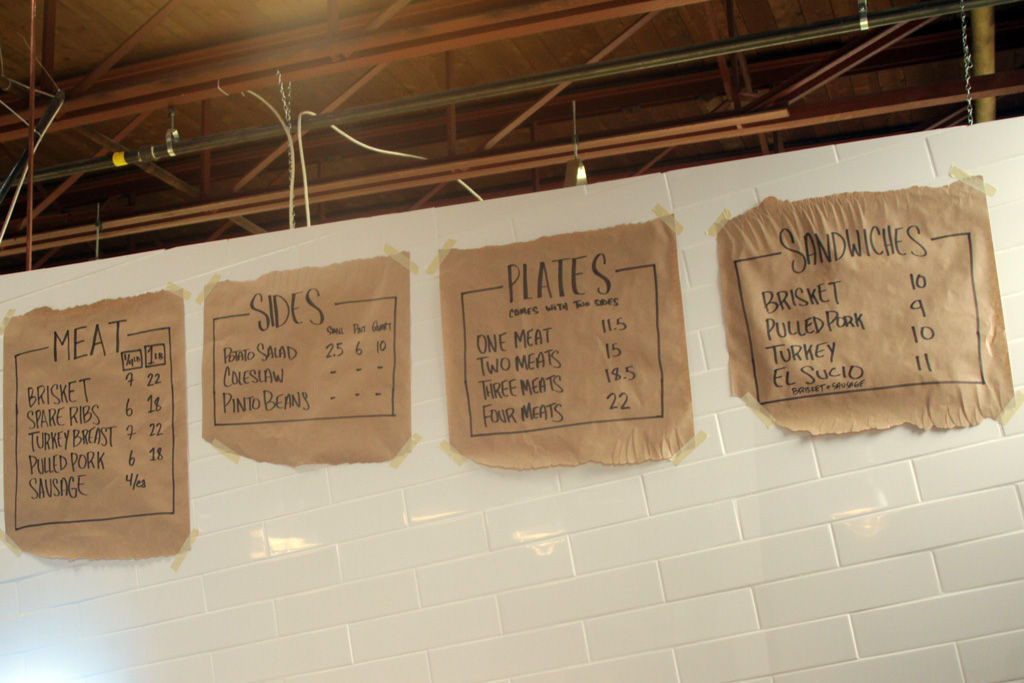 MEAT
1/4 LB 1 LB
BRISKET 7 22
SPARE RIBS 6 18
TURKEY BREAST 7 22
PULLED PORK 6 18
SAUSAGE 4/ea
SIDES
SMALL PINT QUART
POTATO SALAD 2.5 6 10
COLESLAW - - -
PINTO BEANS - - -
PLATES
COMES WITH TWO SIDES
ONE MEAT 11.5
TWO MEATS 15
THREE MEATS 18.5
FOUR MEATS 22
SANDWICHES
BRISKET 10
PULLED PORK 9
TURKEY 10
EL SUCIO 11
BRISKET & SAUSAGE